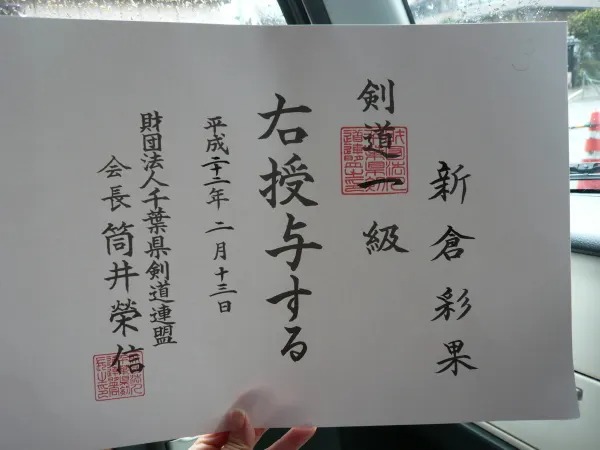 新倉彩果
剣道一級
右授与する
平成二十二年二月十三日
財団法人千葉県剣道連盟
会長筒井榮信